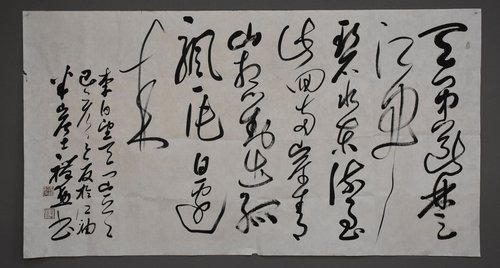 天門中斷楚
江開
碧水東流至
此回兩岸青
山相對出孤
帆一片日邊
來
李白望天門山
書